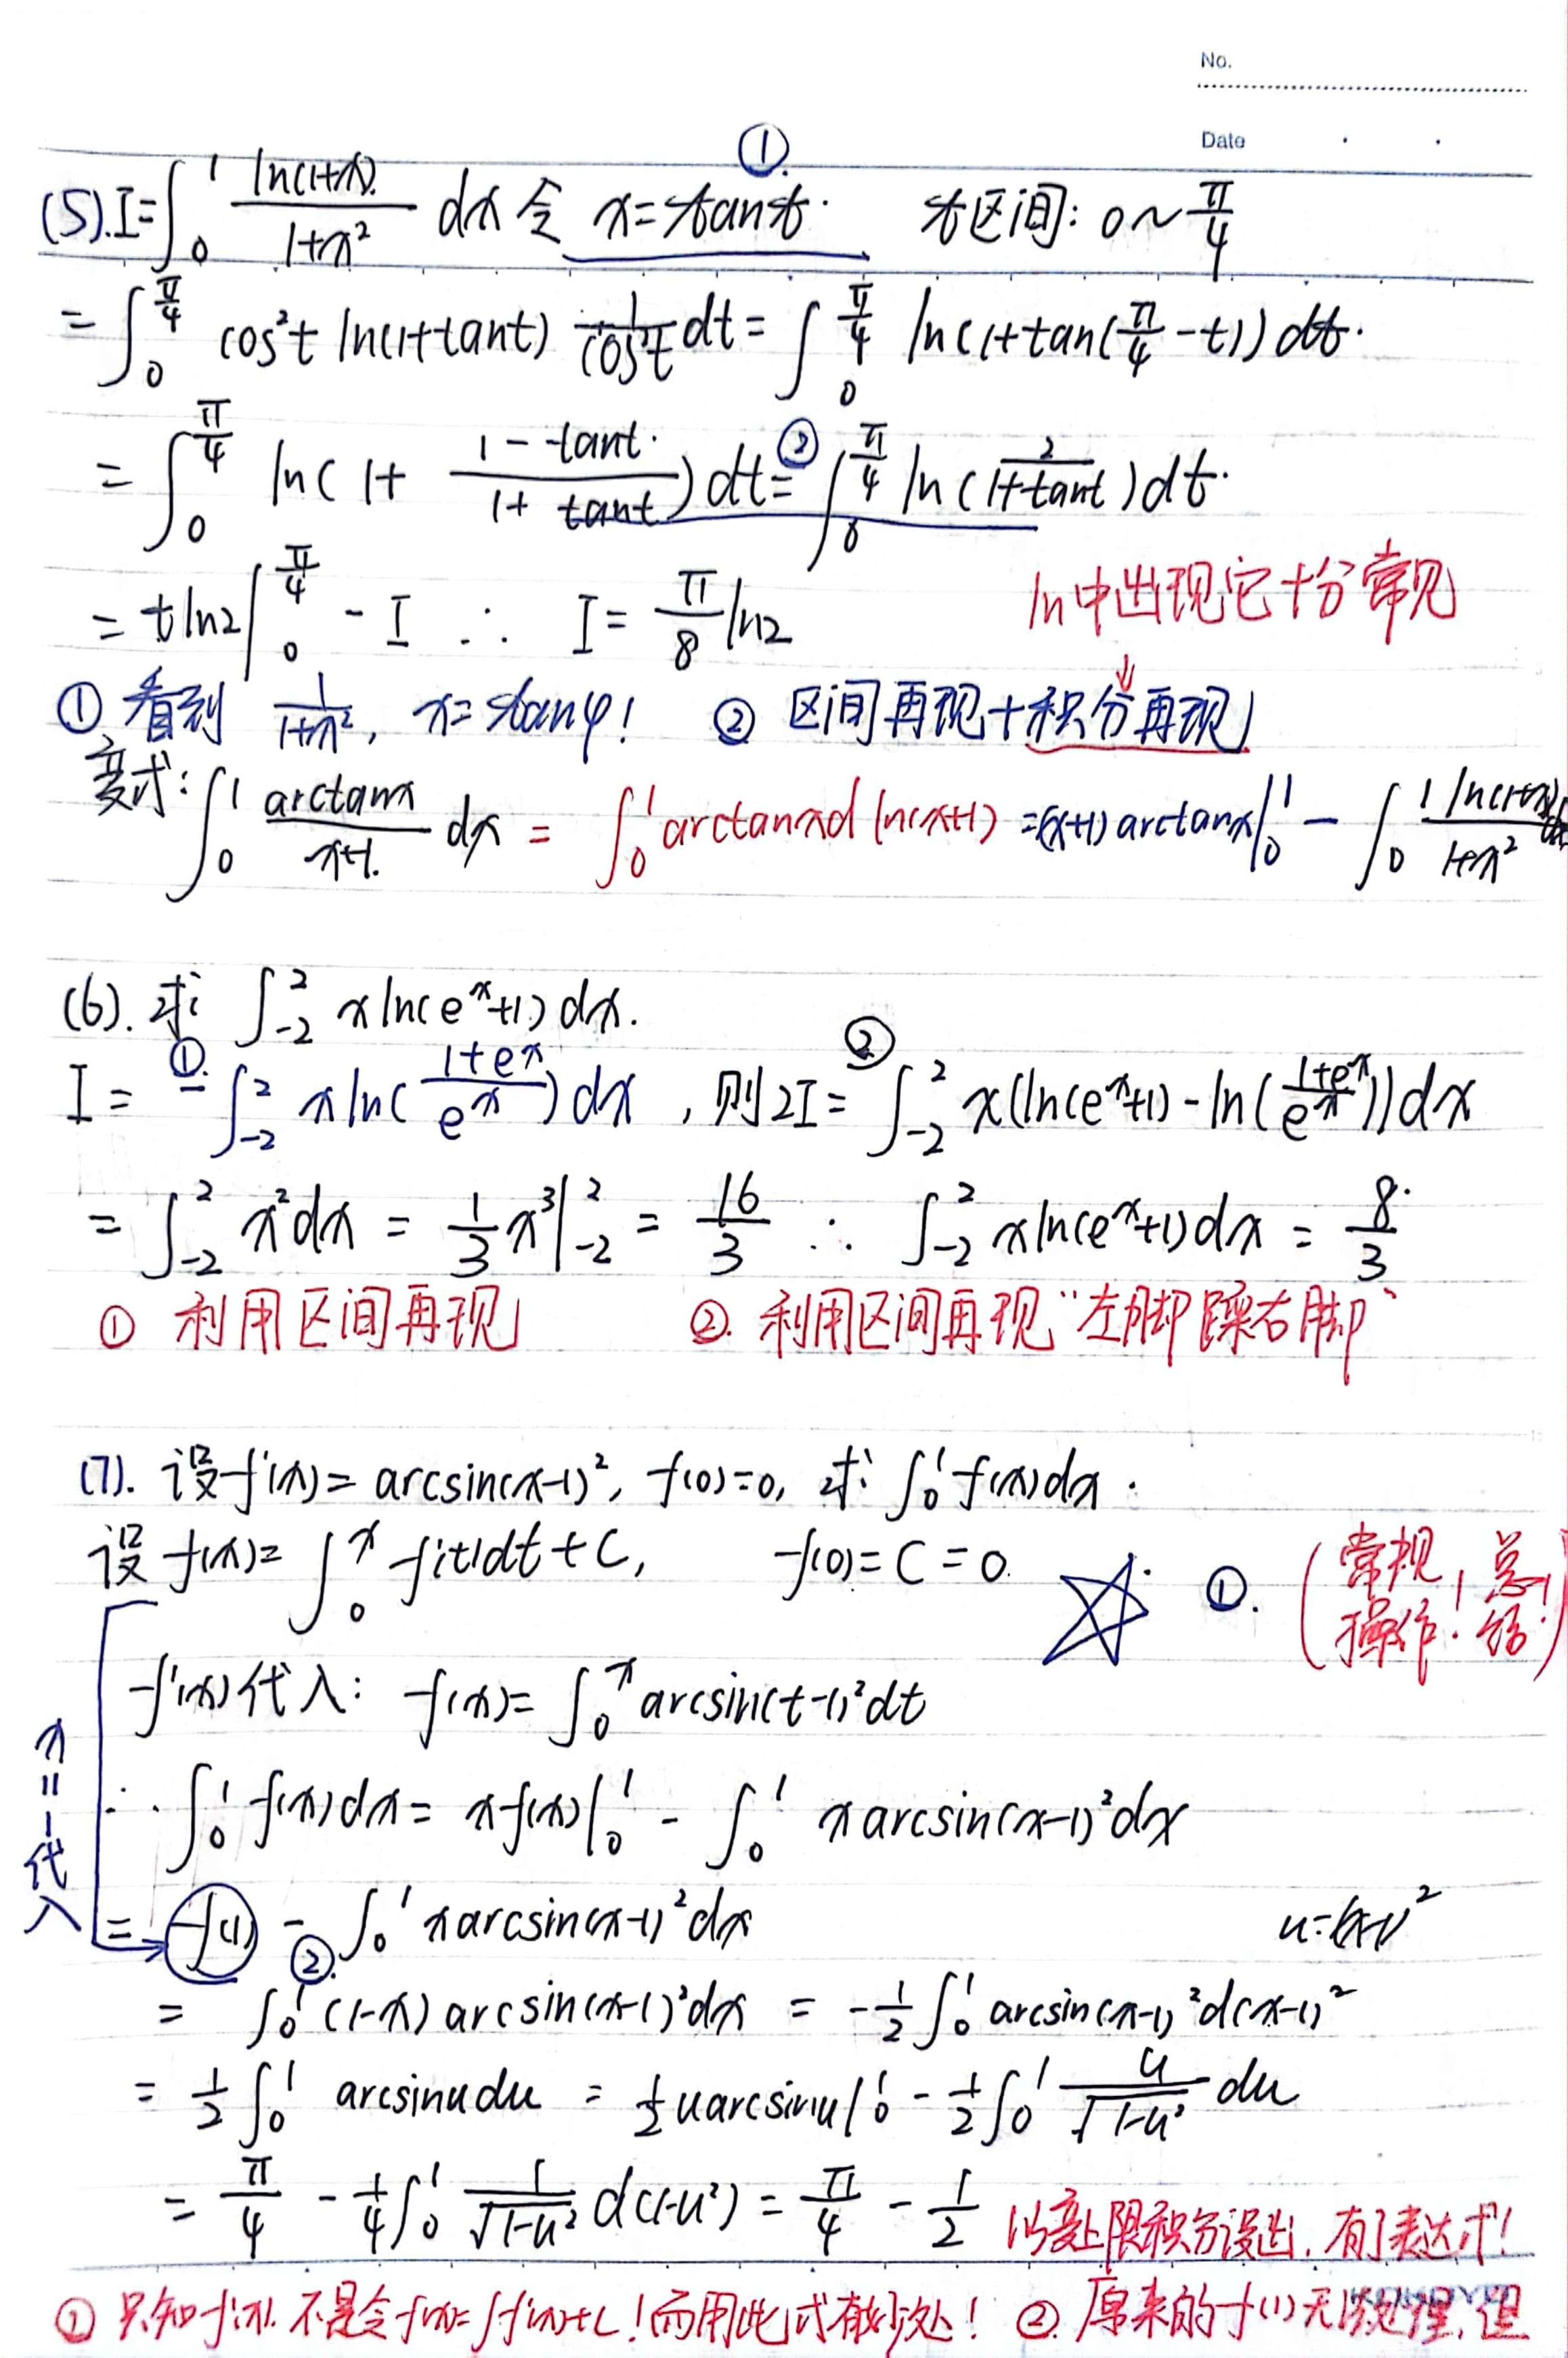 No.
Date
①
(5). I=∫₀¹ ln(1+x)/(1+x²) dx 令 x=tant. t区间: 0~π/4
= ∫₀^(π/4) cos²t ln(1+tant) 1/cos²t dt = ∫₀^(π/4) ln(1+tan(π/4-t)) dt.
= ∫₀^(π/4) ln(1+ (1-tant)/(1+tant)) dt =② ∫₀^(π/4) ln(2/(1+tant)) dt.
= tln2|₀^(π/4) - I ∴ I = π/8 ln2
ln中出现它十分常见
↓
① 看到 1/(1+x²), x=tanφ! ② 区间再现+积分再现
变式: ∫₀¹ arctanx/(x+1) dx = ∫₀¹ arctanx d ln(x+1) =(x+1) arctanx|₀¹ - ∫₀¹ ln(1+x)/(1+x²) dx
(6). 求 ∫₋₂² x ln(eˣ+1) dx.
I = ① -∫₋₂² x ln((1+eˣ)/eˣ) dx , 则2I = ② ∫₋₂² x(ln(eˣ+1) - ln((1+eˣ)/eˣ)) dx
= ∫₋₂² x² dx = 1/3 x³|₋₂² = 16/3 ∴ ∫₋₂² x ln(eˣ+1) dx = 8/3
① 利用区间再现 ②. 利用区间再现“左脚踩右脚”
(7). 设f'(x)= arcsin(x-1)², f(0)=0, 求: ∫₀¹ f(x)dx.
设 f(x)= ∫₀ˣ f'(t)dt + C, f(0)= C = 0. ☆ ①. (常规操作! 总结!)
f'(x)代入: f(x)= ∫₀ˣ arcsin(t-1)² dt
∴ ∫₀¹ f(x)dx = xf(x)|₀¹ - ∫₀¹ x arcsin(x-1)² dx
x=1代入
= f(1) - ∫₀¹ x arcsin(x-1)² dx u=(x-1)²
②.
= ∫₀¹ (1-x) arcsin(x-1)² dx = -1/2 ∫₀¹ arcsin(x-1)² d(x-1)²
= 1/2 ∫₀¹ arcsinu du = 1/2 u arcsinu|₀¹ - 1/2 ∫₀¹ u/√(1-u²) du
= π/4 - 1/4 ∫₀¹ 1/√(1-u²) d(1-u²) = π/4 - 1/2
以变上限积分设出, 有了表达式!
① 只知f'(x). 不是令f(x)=∫f'(x)+C! 而用此式有妙处! ②. 原来的f(1)无法处理, 但